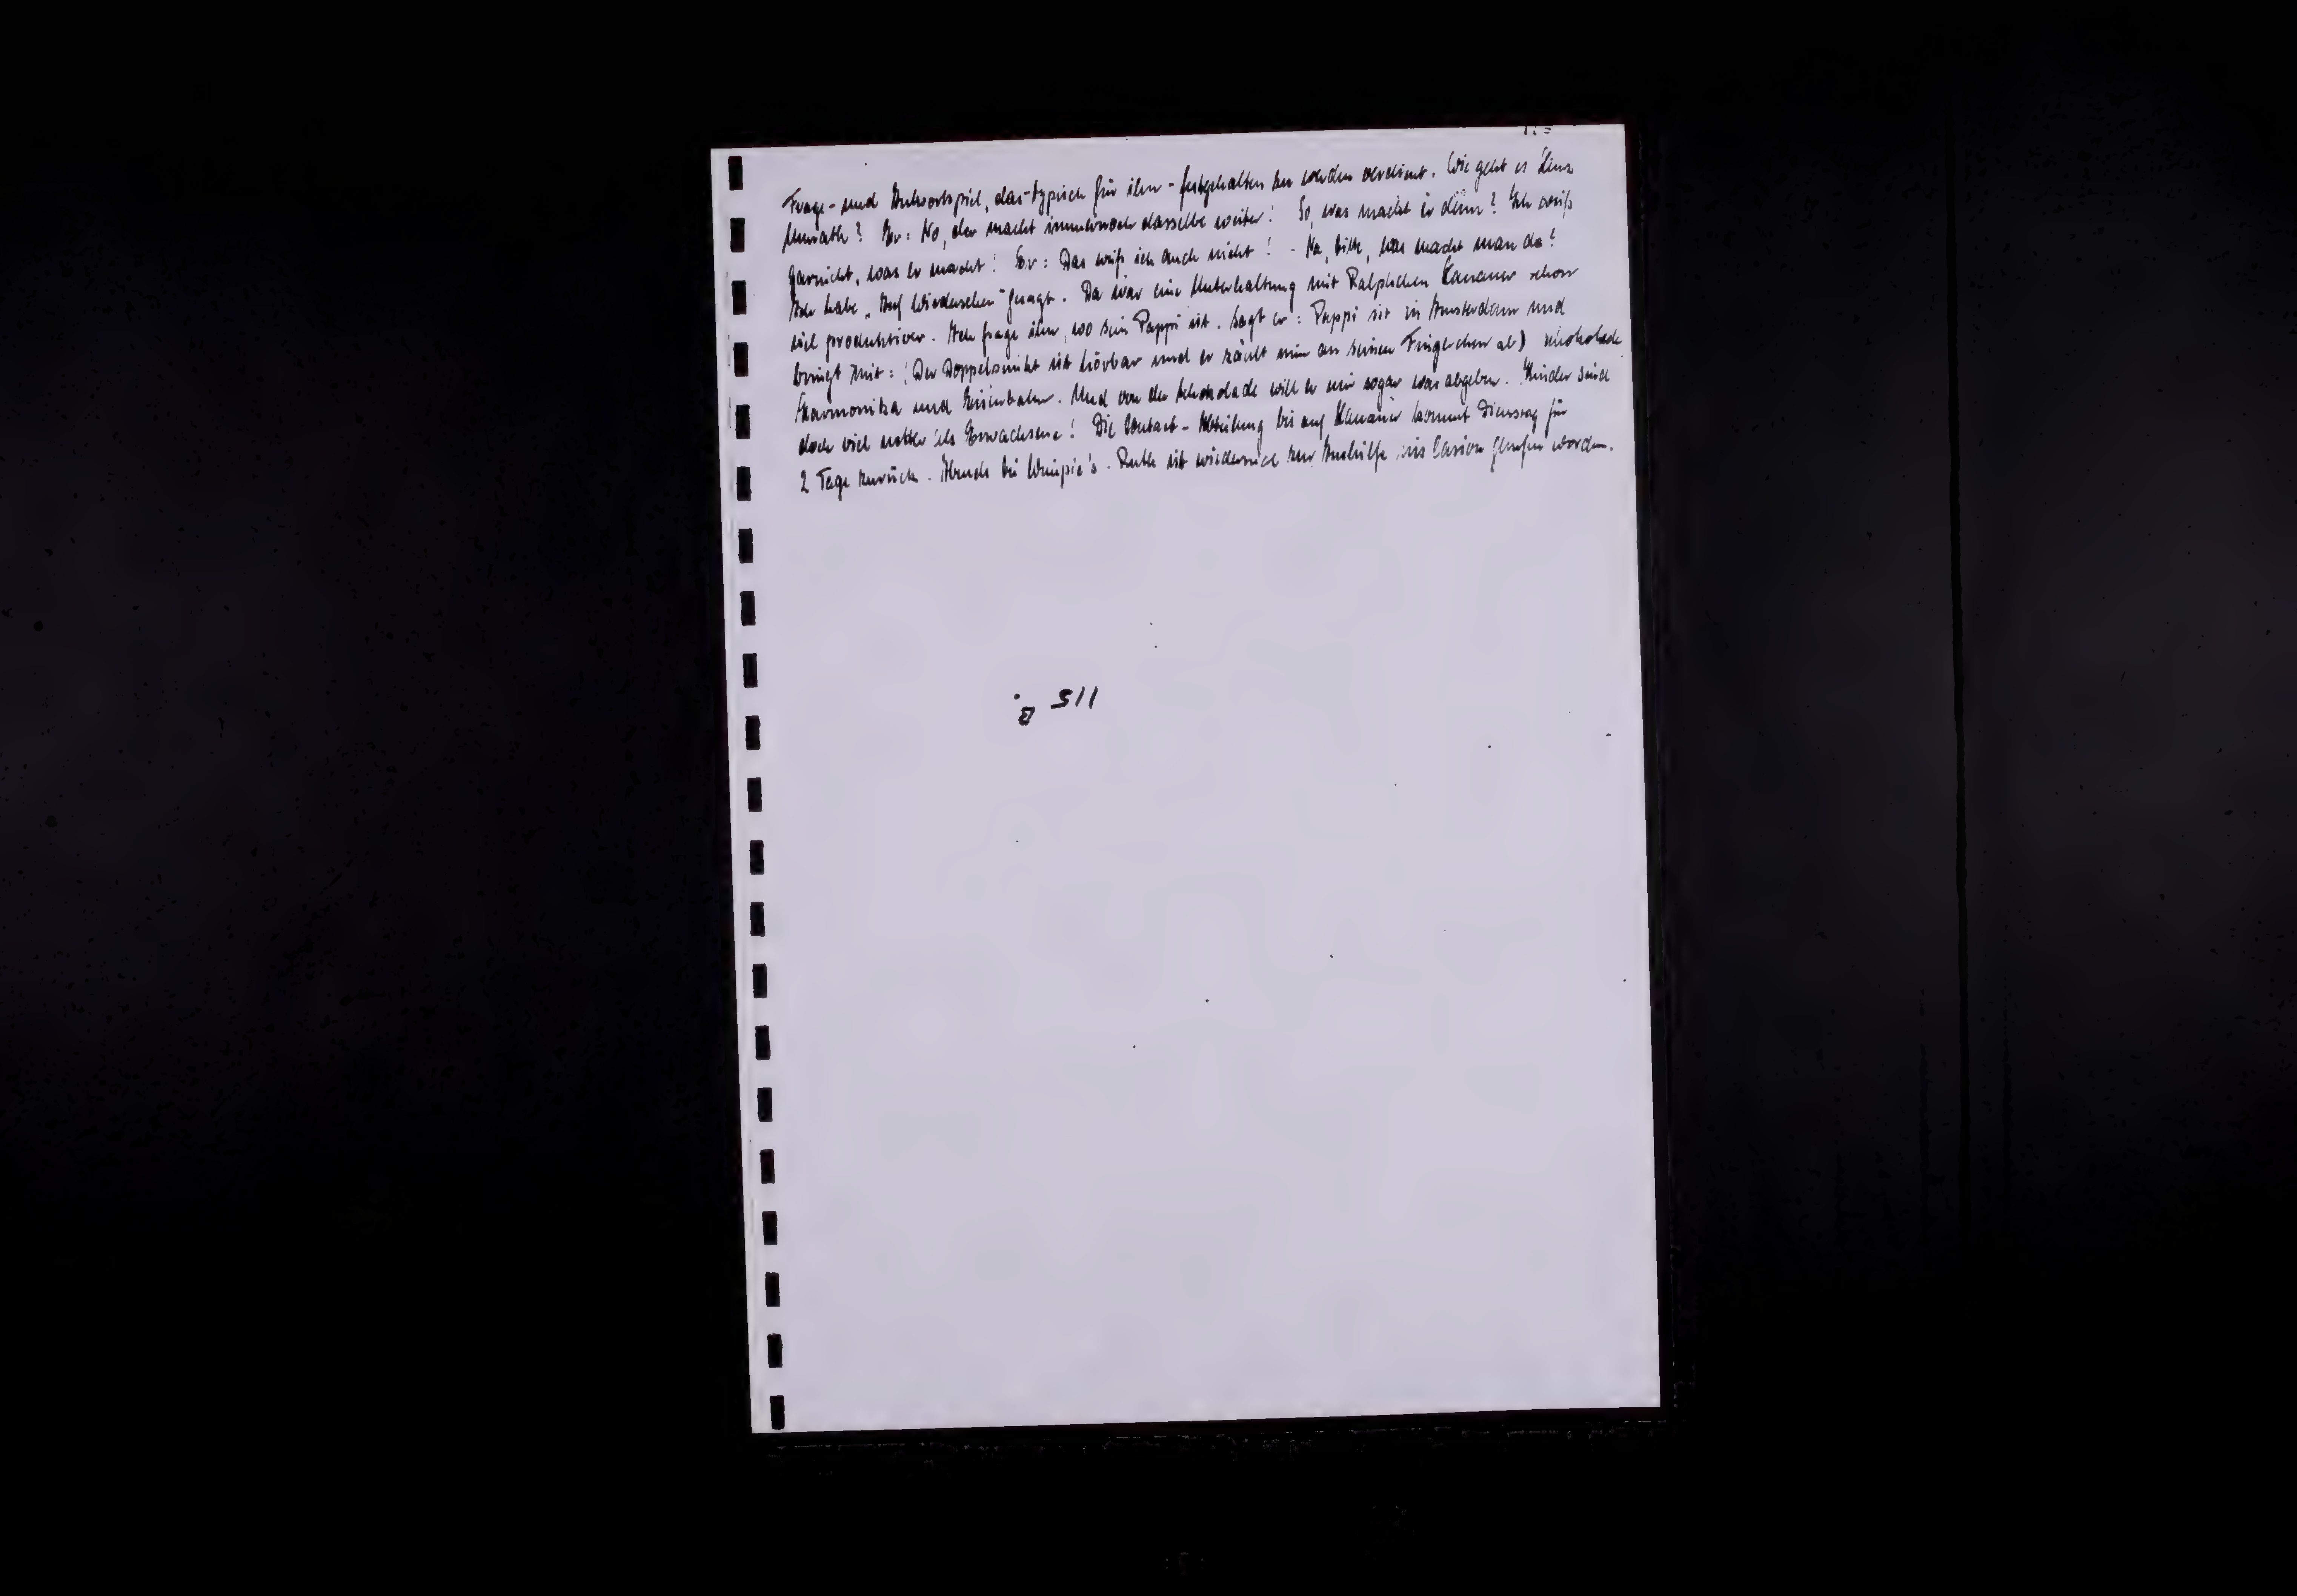 Frage- und Antwortspiel, das-typisch für ihn-festgehalten zu werden verdient. Wie geht es
Er: No, der macht immernoch dasselbe weiter! So, was macht er denn? Ich weiß
garnicht, was er macht! Er: Das weiß ich auch nicht! - Na, bitte, was macht man da?
Ich habe „Auf Wiedersehen" gesagt. Da war eine Unterhaltung mit Ralphchen Kanauer schon
viel produktiver. Ich frage ihn, wo sein Pappi ist. Sagt er: Pappi ist in Amsterdam und
bringt mit: (Der Doppelpunkt ist hörbar und er zählt mir an seinen Fingerchen ab) Schokolade
Harmonika und Eisenbahn. Und von der Schokolade will er mir sogar was abgeben. Kinder sind
doch viel netter als Erwachsene! Die Abteilung bis auf Kanauer kommt Dienstag für
2 Tage zurück. Abends bei Wimpie's. Ruth ist wiedermal zur Aushilfe ins gerufen worden.
115 B.